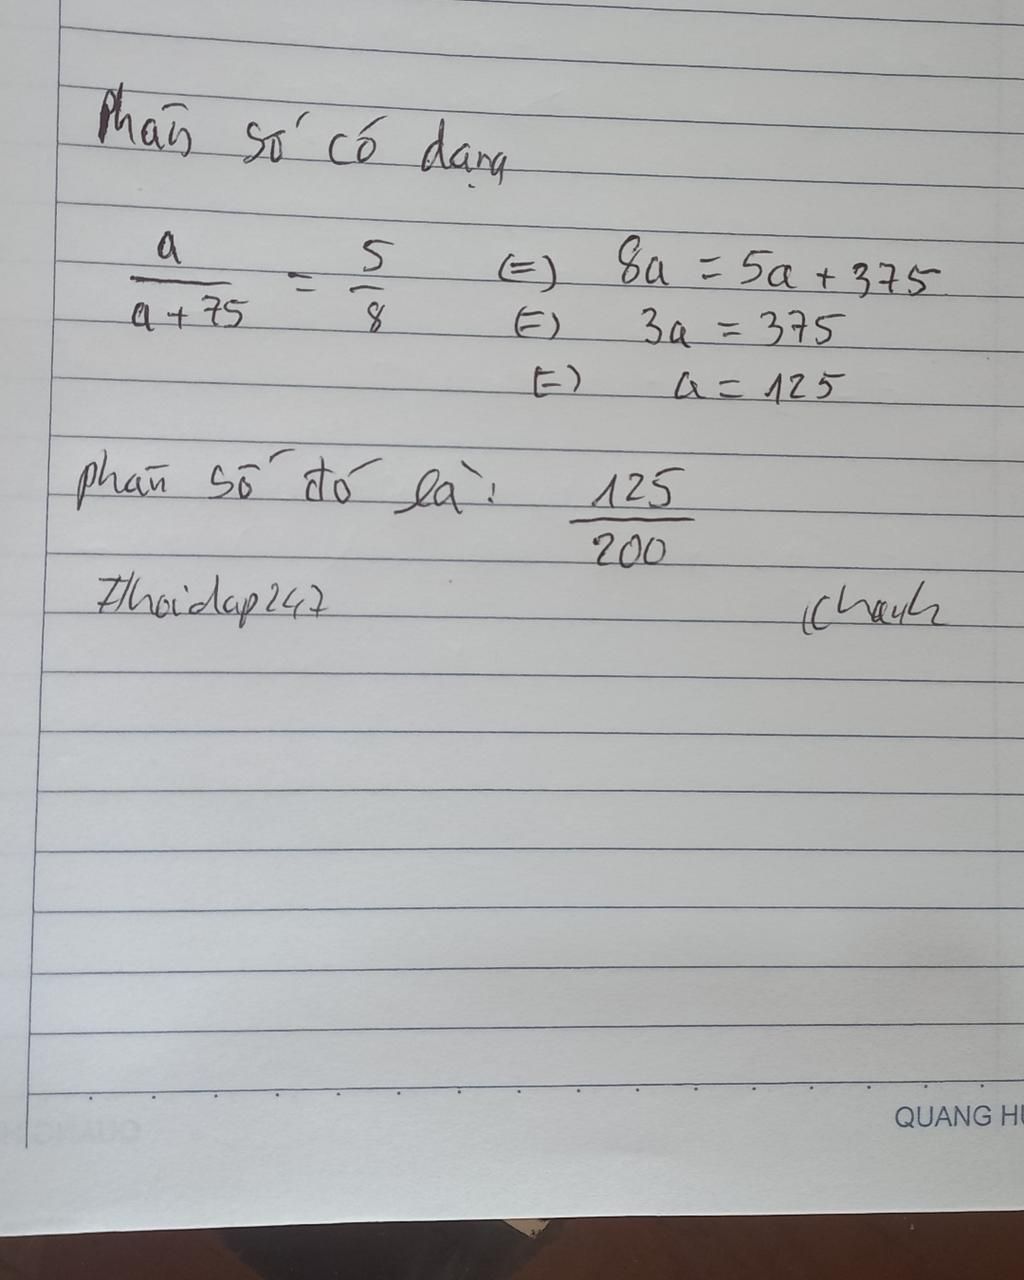 Phân số có dạng
a/(a + 75) = 5/8 (=) 8a = 5a + 375
(=) 3a = 375
(=) a = 125
phân số đó là: 125/200
#hoidap247
QUANG HU